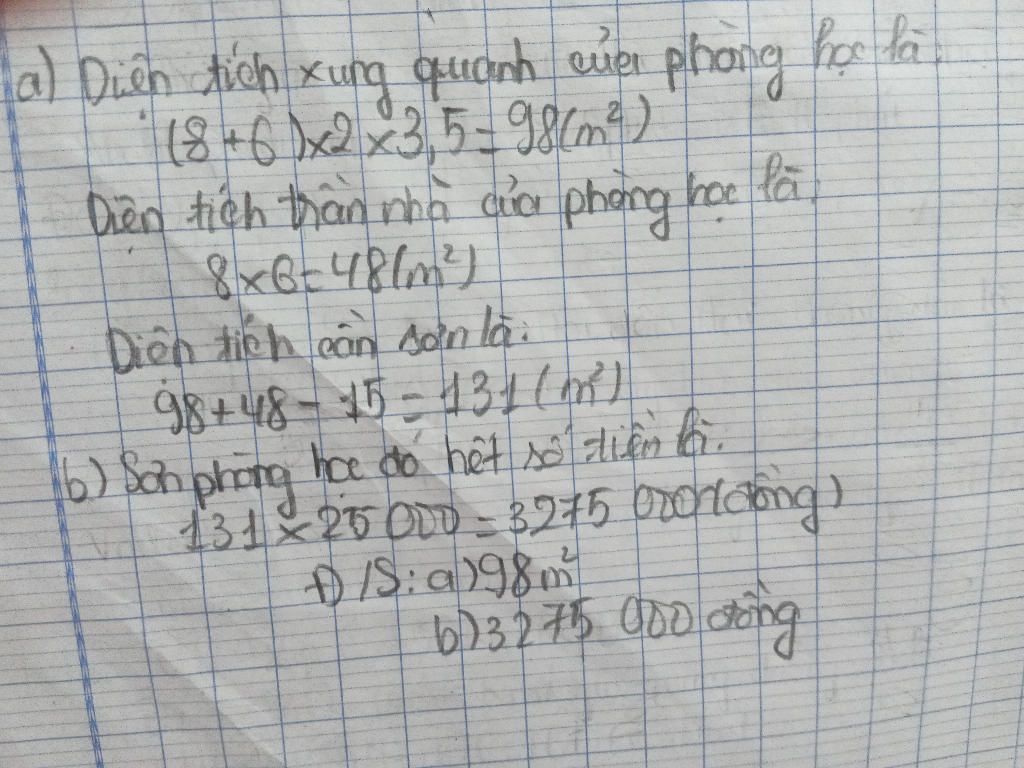 a) Diện tích xung quanh của phòng học là:
(8 + 6) x 2 x 3,5 = 98 (m²)
Diện tích trần nhà của phòng học là:
8 x 6 = 48 (m²)
Diện tích cần sơn là:
98 + 48 - 15 = 131 (m²)
b) Sơn phòng học đó hết số tiền là:
131 x 25 000 = 3275 000 (đồng)
Đ/S: a) 98 m²
b) 3275 000 đồng